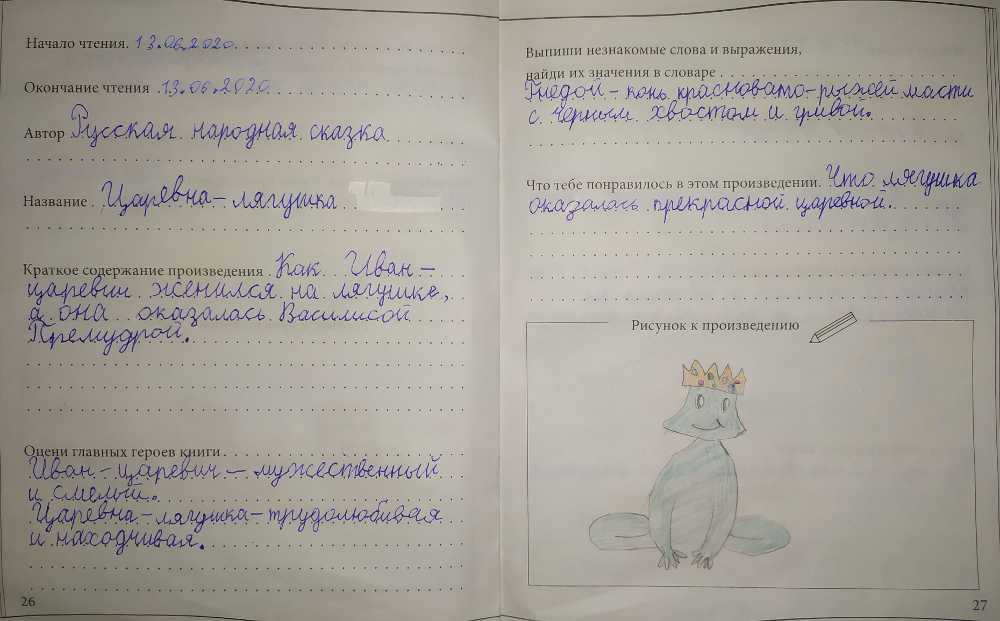 Начало чтения. 13.06.2020.
Окончание чтения .13.06.2020.
Автор Русская народная сказка
Название. Царевна-лягушка
Краткое содержание произведения. Как Иван-
царевич женился на лягушке,
а она оказалась Василисой
Премудрой.
Оцени главных героев книги
Иван-царевич - мужественный
и смелый.
Царевна-лягушка - трудолюбивая
и находчивая.
26
Выпиши незнакомые слова и выражения,
найди их значения в словаре
Гнедой - конь красновато-рыжей масти
с черным хвостом и гривой.
Что тебе понравилось в этом произведении. Что лягушка
оказалась прекрасной царевной.
Рисунок к произведению
27